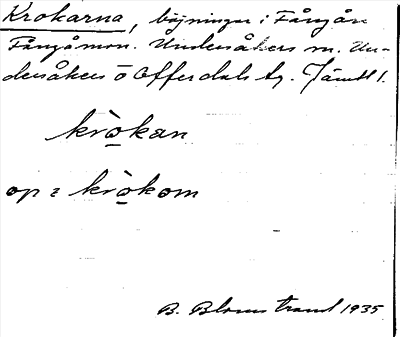 Krokarna, böjningar i Fångån
Fångåmon. Undersåkers sn. Un-
dersåkers o Offerdals tg. Jämtl.
krò̠kan
op z krò̠kom
B. Blomstrand 1935